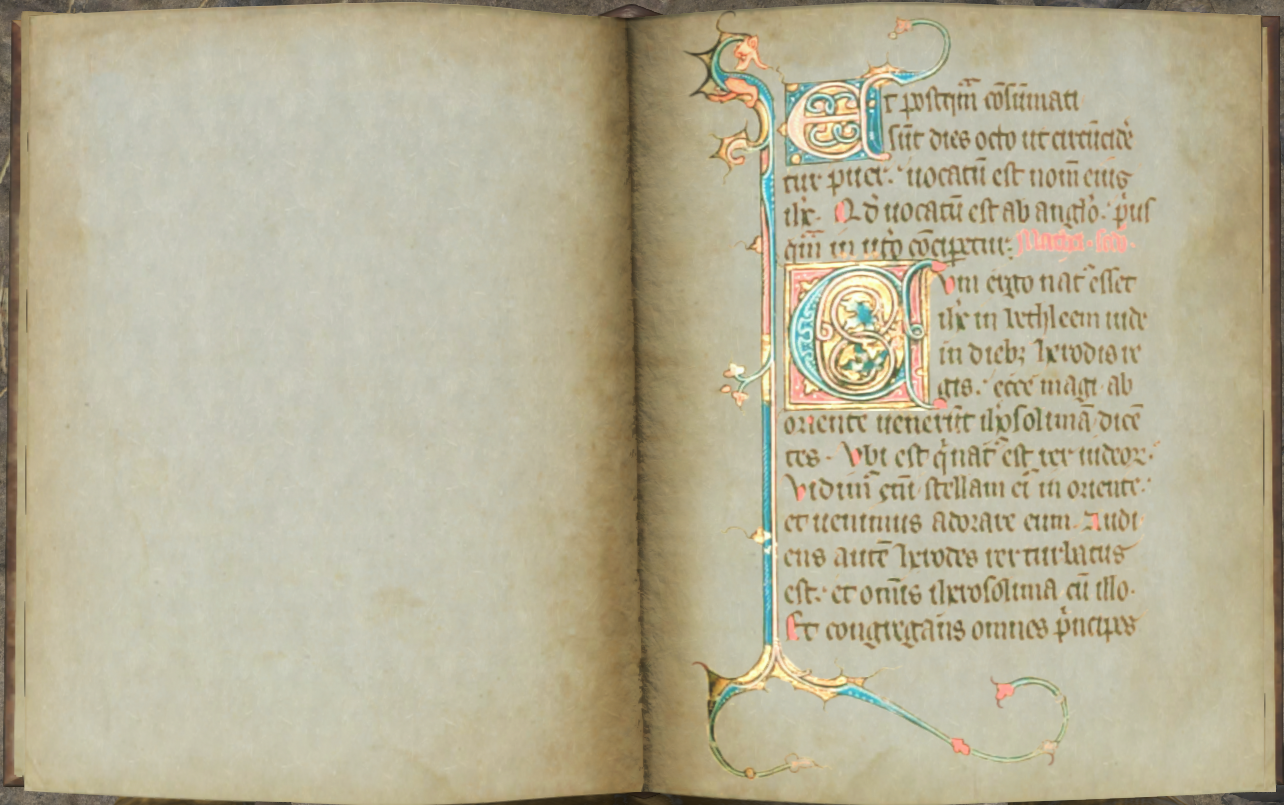 Et postqͣm cōsūmati
sūt dies octo ut circūcidē
tur puer. uocatū est nom̄ eius
ihc. Qd uocatū est ab anglo. pͥus
qͣm in utō cōciperetur. Mathei. scd̄.
Cum ergo nat̄ esset
ihc in bethleem iude
in dieb; herodis re
gis. ecce magi ab
oriente uenerūt ihosolimā dicē
tes. Vbi est qͥ nat̄ est rex iudeoꝝ.
Vidim̄ eni stellam ei᷒ in oriente.
et uenimus adorare eum. Audi
ens autē herodes rex turbatus
est. et omīs iherosolima cū illo.
Et congregans omnes pͥncipes